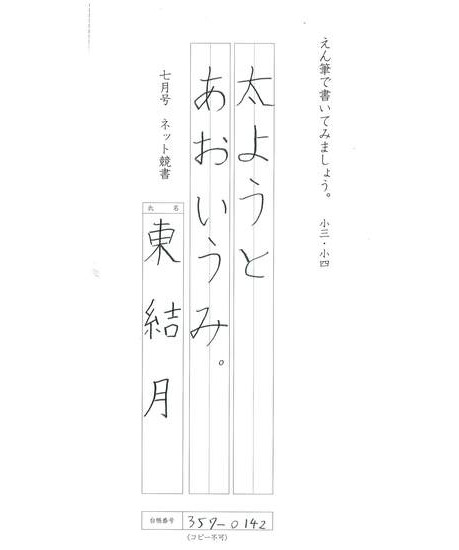 えん筆で書いてみましょう。 小三・小四
太ようと
あおいうみ。
七月号 ネット競書
氏名
東結月
台帳番号 357-0142
(コピー不可)